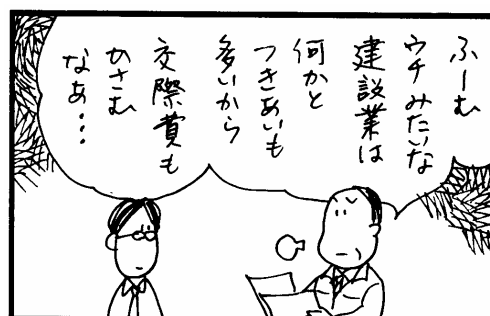 ふーむ
ウチみたいな
建設業は
何かと
つきあいも
多いから
交際費も
かさむ
なあ・・・